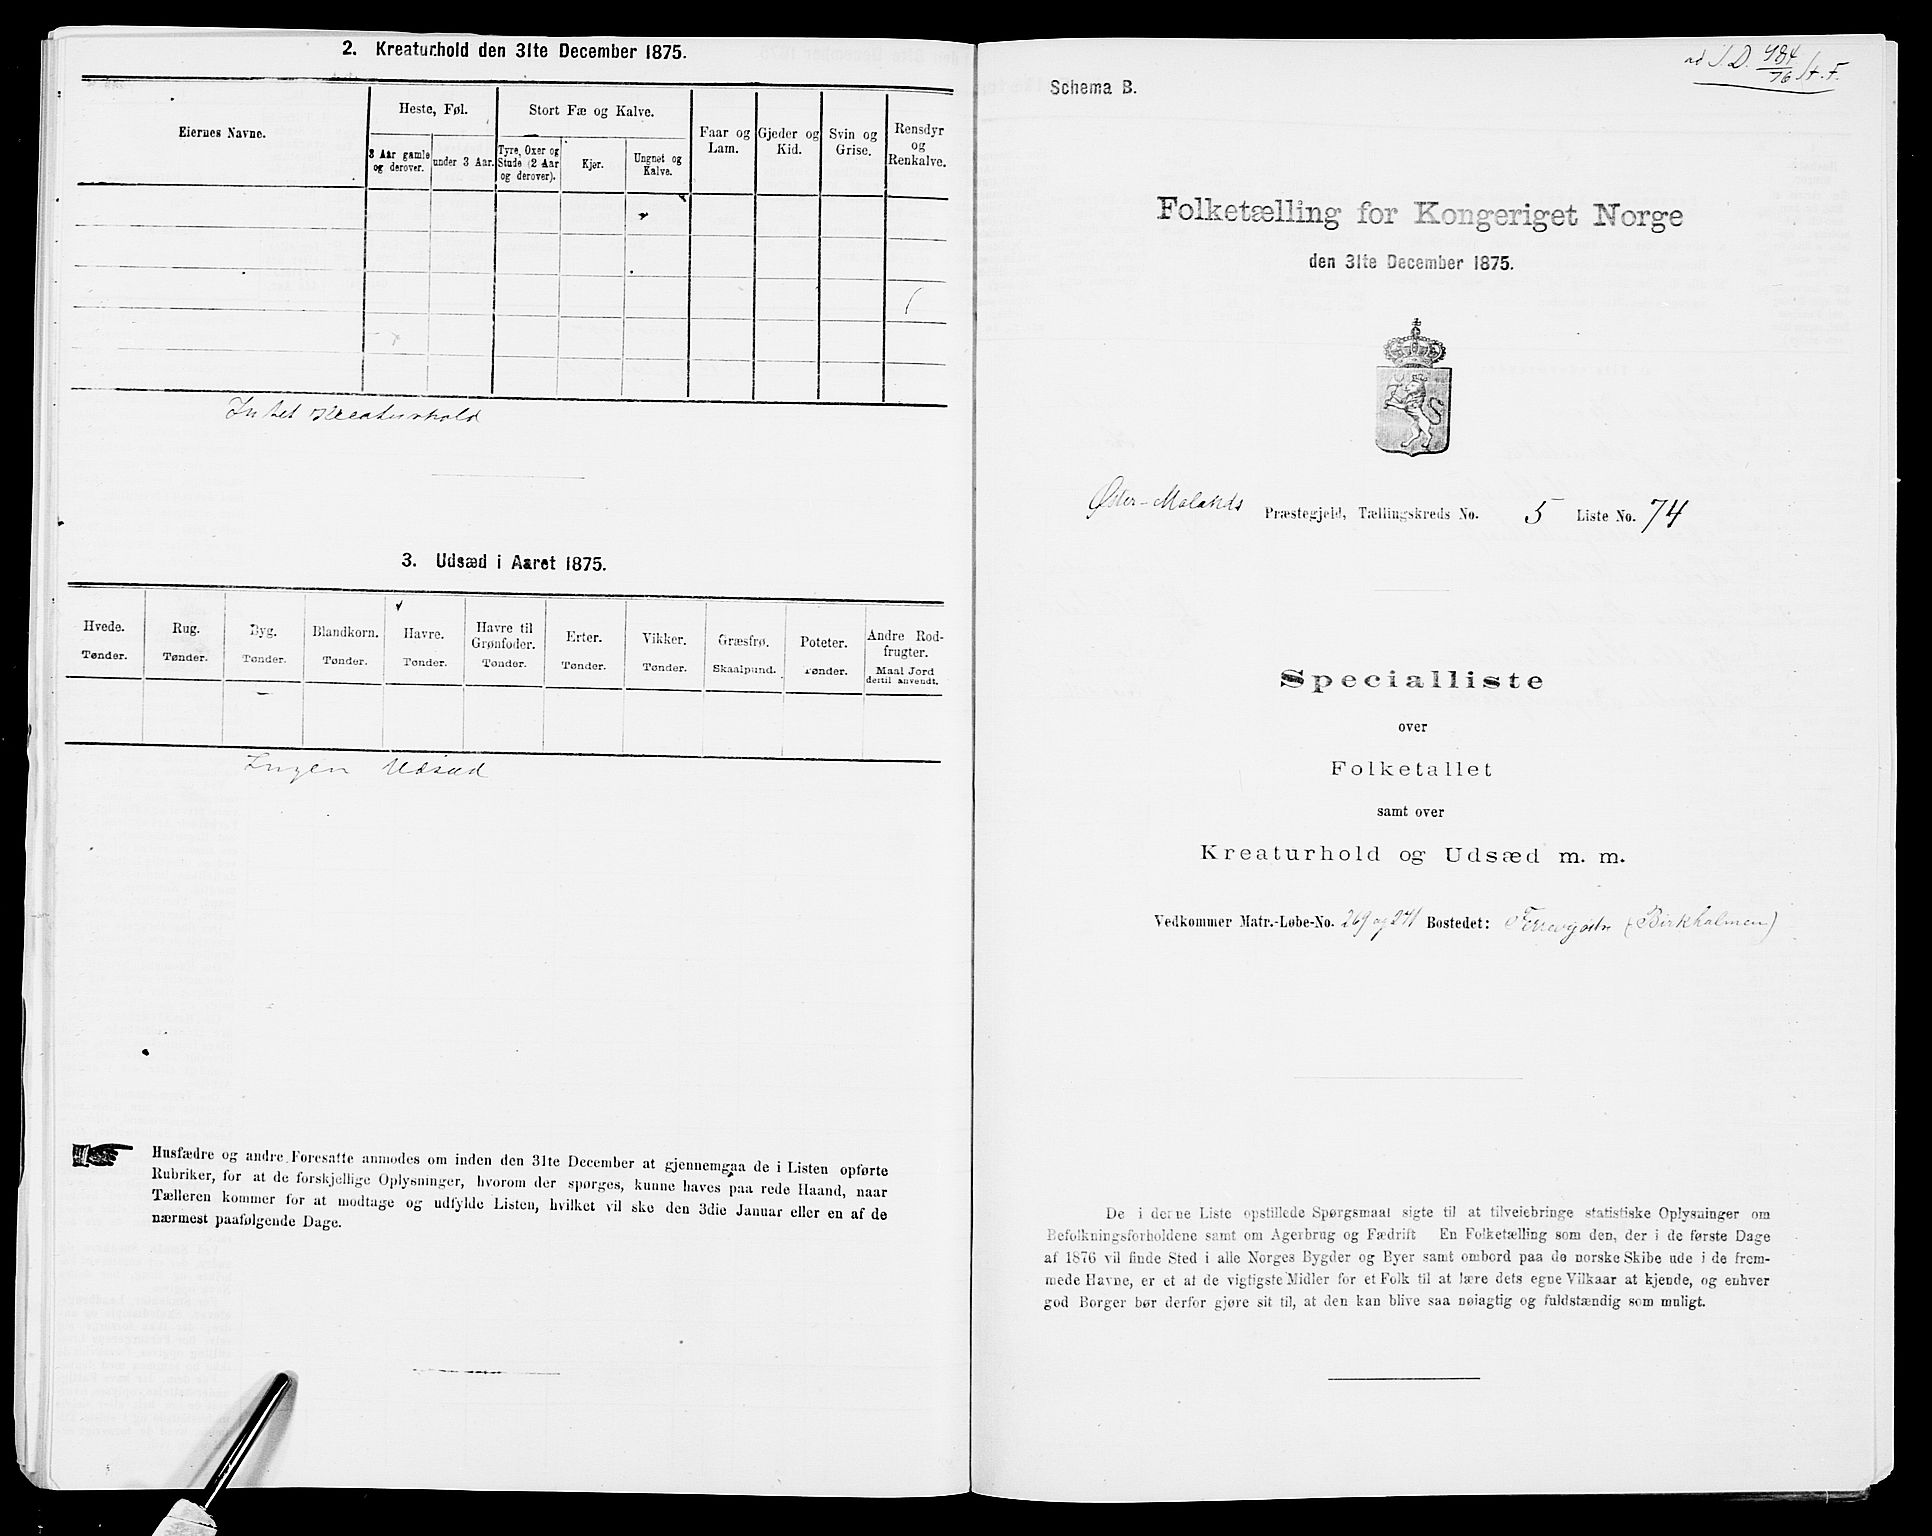 2. Kreaturhold den 31te December 1875.
Eiernes Navne.
Heste, Føl.
Stort Fæ og Kalve.
Faar og
Lam.
Gjeder og
Kid.
Svin og
Grise.
Rensdyr
og
Renkalve.
3 Aar gamle
og derover.
under 3 Aar.
Tyre, Oxer og
Stude (2 Aar
og derover).
Kjør.
Ungnet og
Kalve.
Intet Kreaturhold
3. Udsæd i Aaret 1875.
Hvede.
Tønder.
Rug.
Tønder.
Byg.
Tønder.
Blandkorn.
Tønder.
Havre.
Tønder.
Havre til
Grønfoder.
Tønder.
Erter.
Tønder.
Vikker.
Tønder.
Græsfrø.
Skaalpund.
Poteter.
Tønder.
Andre Rod-
frugter.
Maal Jord
dertil anvendt.
Ingen Udsæd
Husfædre og andre Foresatte anmodes om inden den 31te December at gjennemgaa de i Listen opførte
Rubriker, for at de forskjellige Oplysninger, hvorom der spørges, kunne haves paa rede Haand, naar
Tælleren kommer for at modtage og udfylde Listen, hvilket vil ske den 3die Januar eller en af de
nærmest paafølgende Dage.
Schema B.
Folketælling for Kongeriget Norge
den 31te December 1875.
Øster-Molands Præstegjeld, Tællingskreds No. 5 Liste No. 74
Specialliste
over
Folketallet
samt over
Kreaturhold og Udsæd m. m.
Vedkommer Matr.-Løbe-No. 269 og 271 Bostedet: (Birkholmen)
De i denne Liste opstillede Spørgsmaal sigte til at tilveiebringe statistiske Oplysninger om
Befolkningsforholdene samt om Agerbrug og Fædrift En Folketælling som den, der i de første Dage
af 1876 vil finde Sted i alle Norges Bygder og Byer samt ombord paa de norske Skibe ude i de frem-
mede Havne, er et af de vigtigste Midler for et Folk til at lære dets egne Vilkaar at kjende, og enhver
god Borger bør derfor gjøre sit til, at den kan blive saa nøiagtig og fuldstændig som muligt.